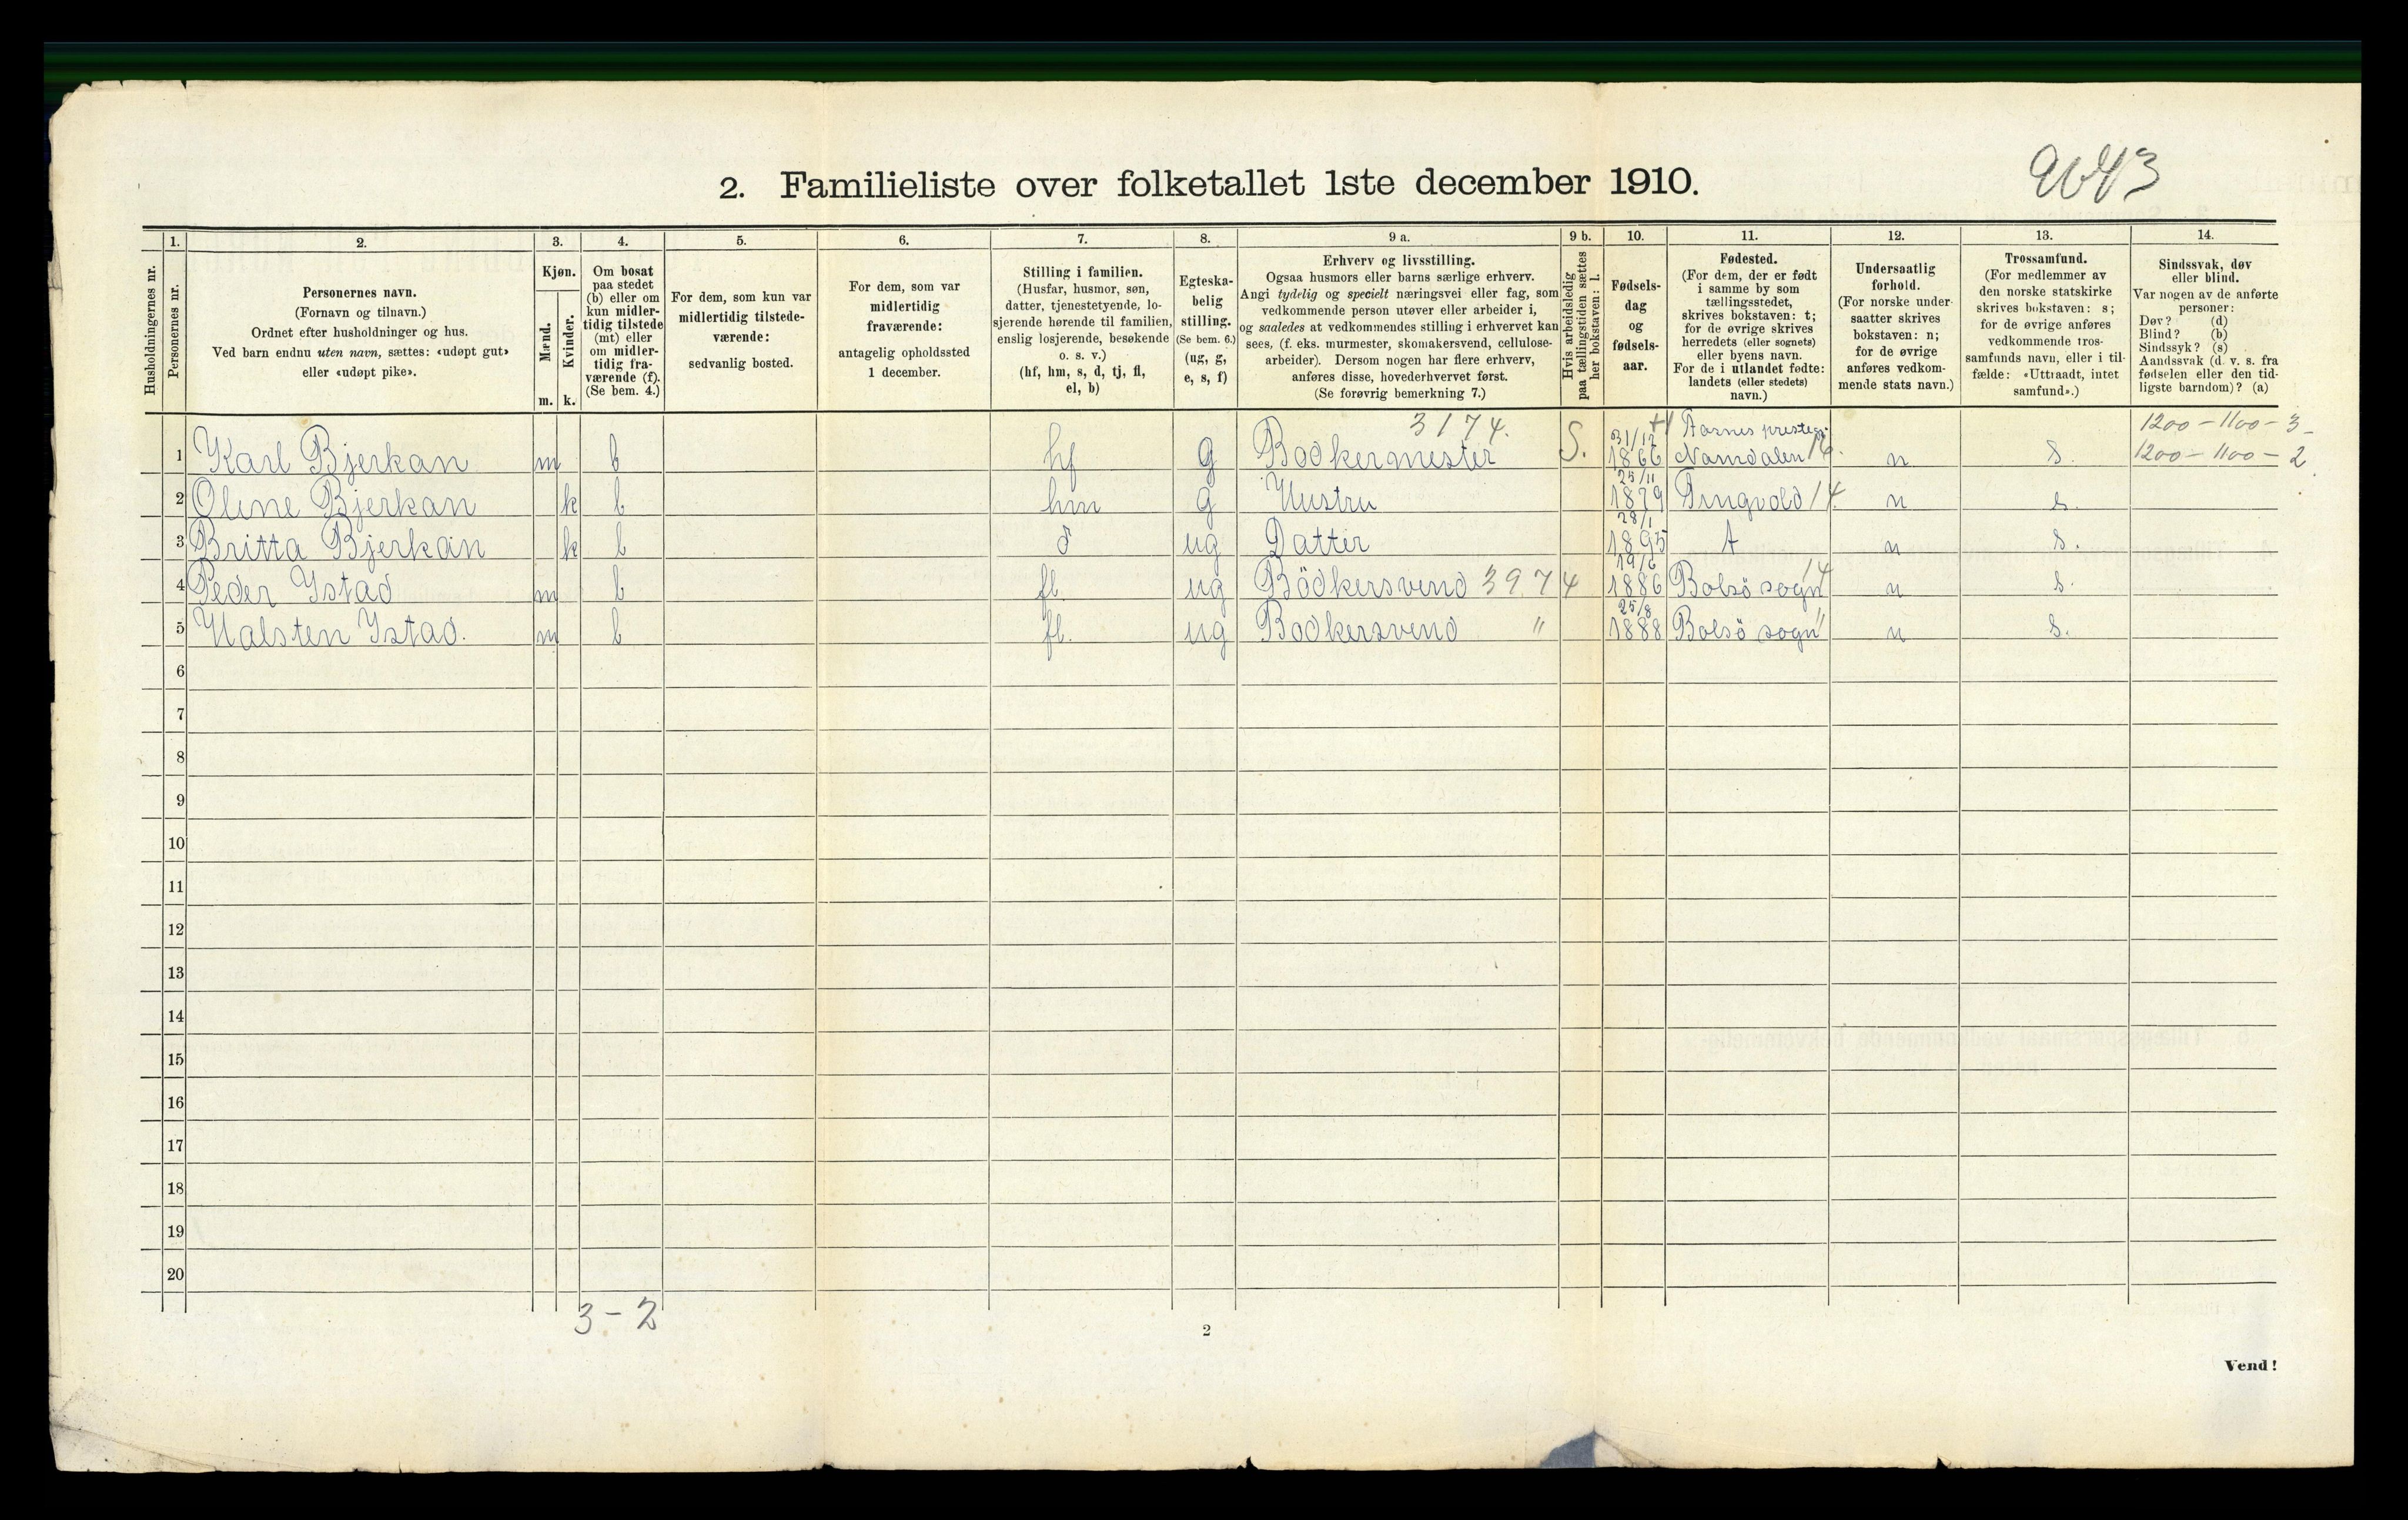 9643
2. Familieliste over folketallet 1ste december 1910.
Husholdningernes nr.
1.
Personernes nr.
2.
Personernes navn.
(Fornavn og tilnavn.)
Ordnet efter husholdninger og hus.
Ved barn endnu uten navn, sættes: «udøpt gut»
eller «udøpt pike».
3.
Kjøn.
Mænd.
Kvinder.
m. k.
4.
Om bosat
paa stedet
(b) eller om
kun midler-
tidig tilstede
(mt) eller
om midler-
tidig fra-
værende (f).
(Se bem. 4.)
5.
For dem, som kun var
midlertidig tilstede-
værende:
sedvanlig bosted.
6.
For dem, som var
midlertidig
fraværende:
antagelig opholdssted
1 december.
7.
Stilling i familien.
(Husfar, husmor, søn,
datter, tjenestetyende, lo-
sjerende hørende til familien,
enslig losjerende, besøkende
o. s. v.)
(hf, hm, s, d, tj, fl,
el, b)
8.
Egteska-
belig
stilling.
(Se bem. 6.)
(ug, g,
e, s, f)
9 a.
Erhverv og livsstilling.
Ogsaa husmors eller barns særlige erhverv.
Angi tydelig og specielt næringsvei eller fag, som
vedkommende person utøver eller arbeider i,
og saaledes at vedkommendes stilling i erhvervet kan
sees, (f. eks. murmester, skomakersvend, cellulose-
arbeider). Dersom nogen har flere erhverv,
anføres disse, hovederhvervet først.
(Se forøvrig bemerkning 7.)
9 b.
Hvis arbeidsledig
paa tællingstiden sættes
her bokstaven: l.
10.
Fødsels-
dag
og
fødsels-
aar.
11.
Fødested.
(For dem, der er født
i samme by som
tællingsstedet,
skrives bokstaven: t;
for de øvrige skrives
herredets (eller sognets)
eller byens navn.
For de i utlandet fødte:
landets (eller stedets)
navn.)
12.
Undersaatlig
forhold.
(For norske under-
saatter skrives
bokstaven: n;
for de øvrige
anføres vedkom-
mende stats navn.)
13.
Trossamfund.
(For medlemmer av
den norske statskirke
skrives bokstaven: s;
for de øvrige anføres
vedkommende tros-
samfunds navn, eller i til-
fælde: «Uttraadt, intet
samfund».)
14.
Sindssvak, døv
eller blind.
Var nogen av de anførte
personer:
Døv? (d)
Blind? (b)
Sindssyk? (s)
Aandssvak (d. v. s. fra
fødselen eller den tid-
ligste barndom)? (a)
3174. 31/12 1200 - 1100 - 3 -
1 Karl Bjerkan m b hf g Bodkermester S. 1866 Namdalen 16. n s. 1200 - 1100 - 2
25/11
2 Oline Bjerkan k b hm g Hustru 1879 Tingvold 14. n s.
28/1
3 Britta Bjerkan k b d ug Datter 1895 t n s.
19/6 14
4 Peder Ystad m b fl. ug Bödkersvend 3974 1886 Bolsö sogn n s.
25/8
5 Halsten Ystad. m b fl. ug Bodkersvend " 1888 Bolsö sogn " n s.
6
7
8
9
10
11
12
13
14
15
16
17
18
19
20
3 - 2
2
Vend!